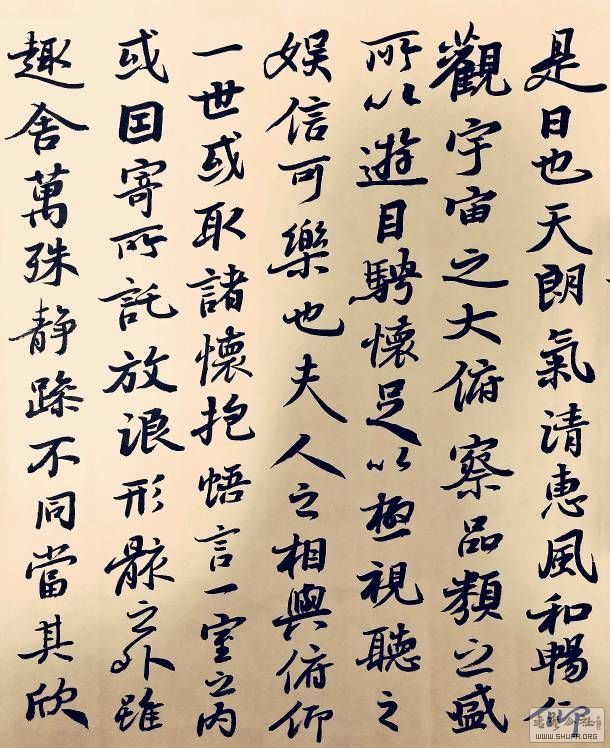 是日也天朗氣清恵風和暢仰
觀宇宙之大俯察品類之盛
所以遊目騁懷足以極視聽之
娱信可樂也夫人之相與俯仰
一世或取諸懷抱悟言一室之内
或因寄所託放浪形骸之外雖
趣舍萬殊静躁不同當其欣
WWW.SHUFA.ORG